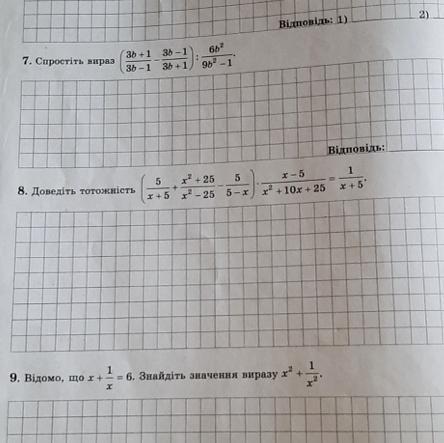 Відповідь: 1) 2)
7. Спростіть вираз (3b + 1 / 3b − 1 − 3b − 1 / 3b + 1) : 6b² / 9b² − 1.
Відповідь:
8. Доведіть тотожність (5 / x + 5 + x² + 25 / x² − 25 − 5 / 5 − x) · x − 5 / x² + 10x + 25 = 1 / x + 5.
9. Відомо, що x + 1 / x = 6. Знайдіть значення виразу x² + 1 / x².